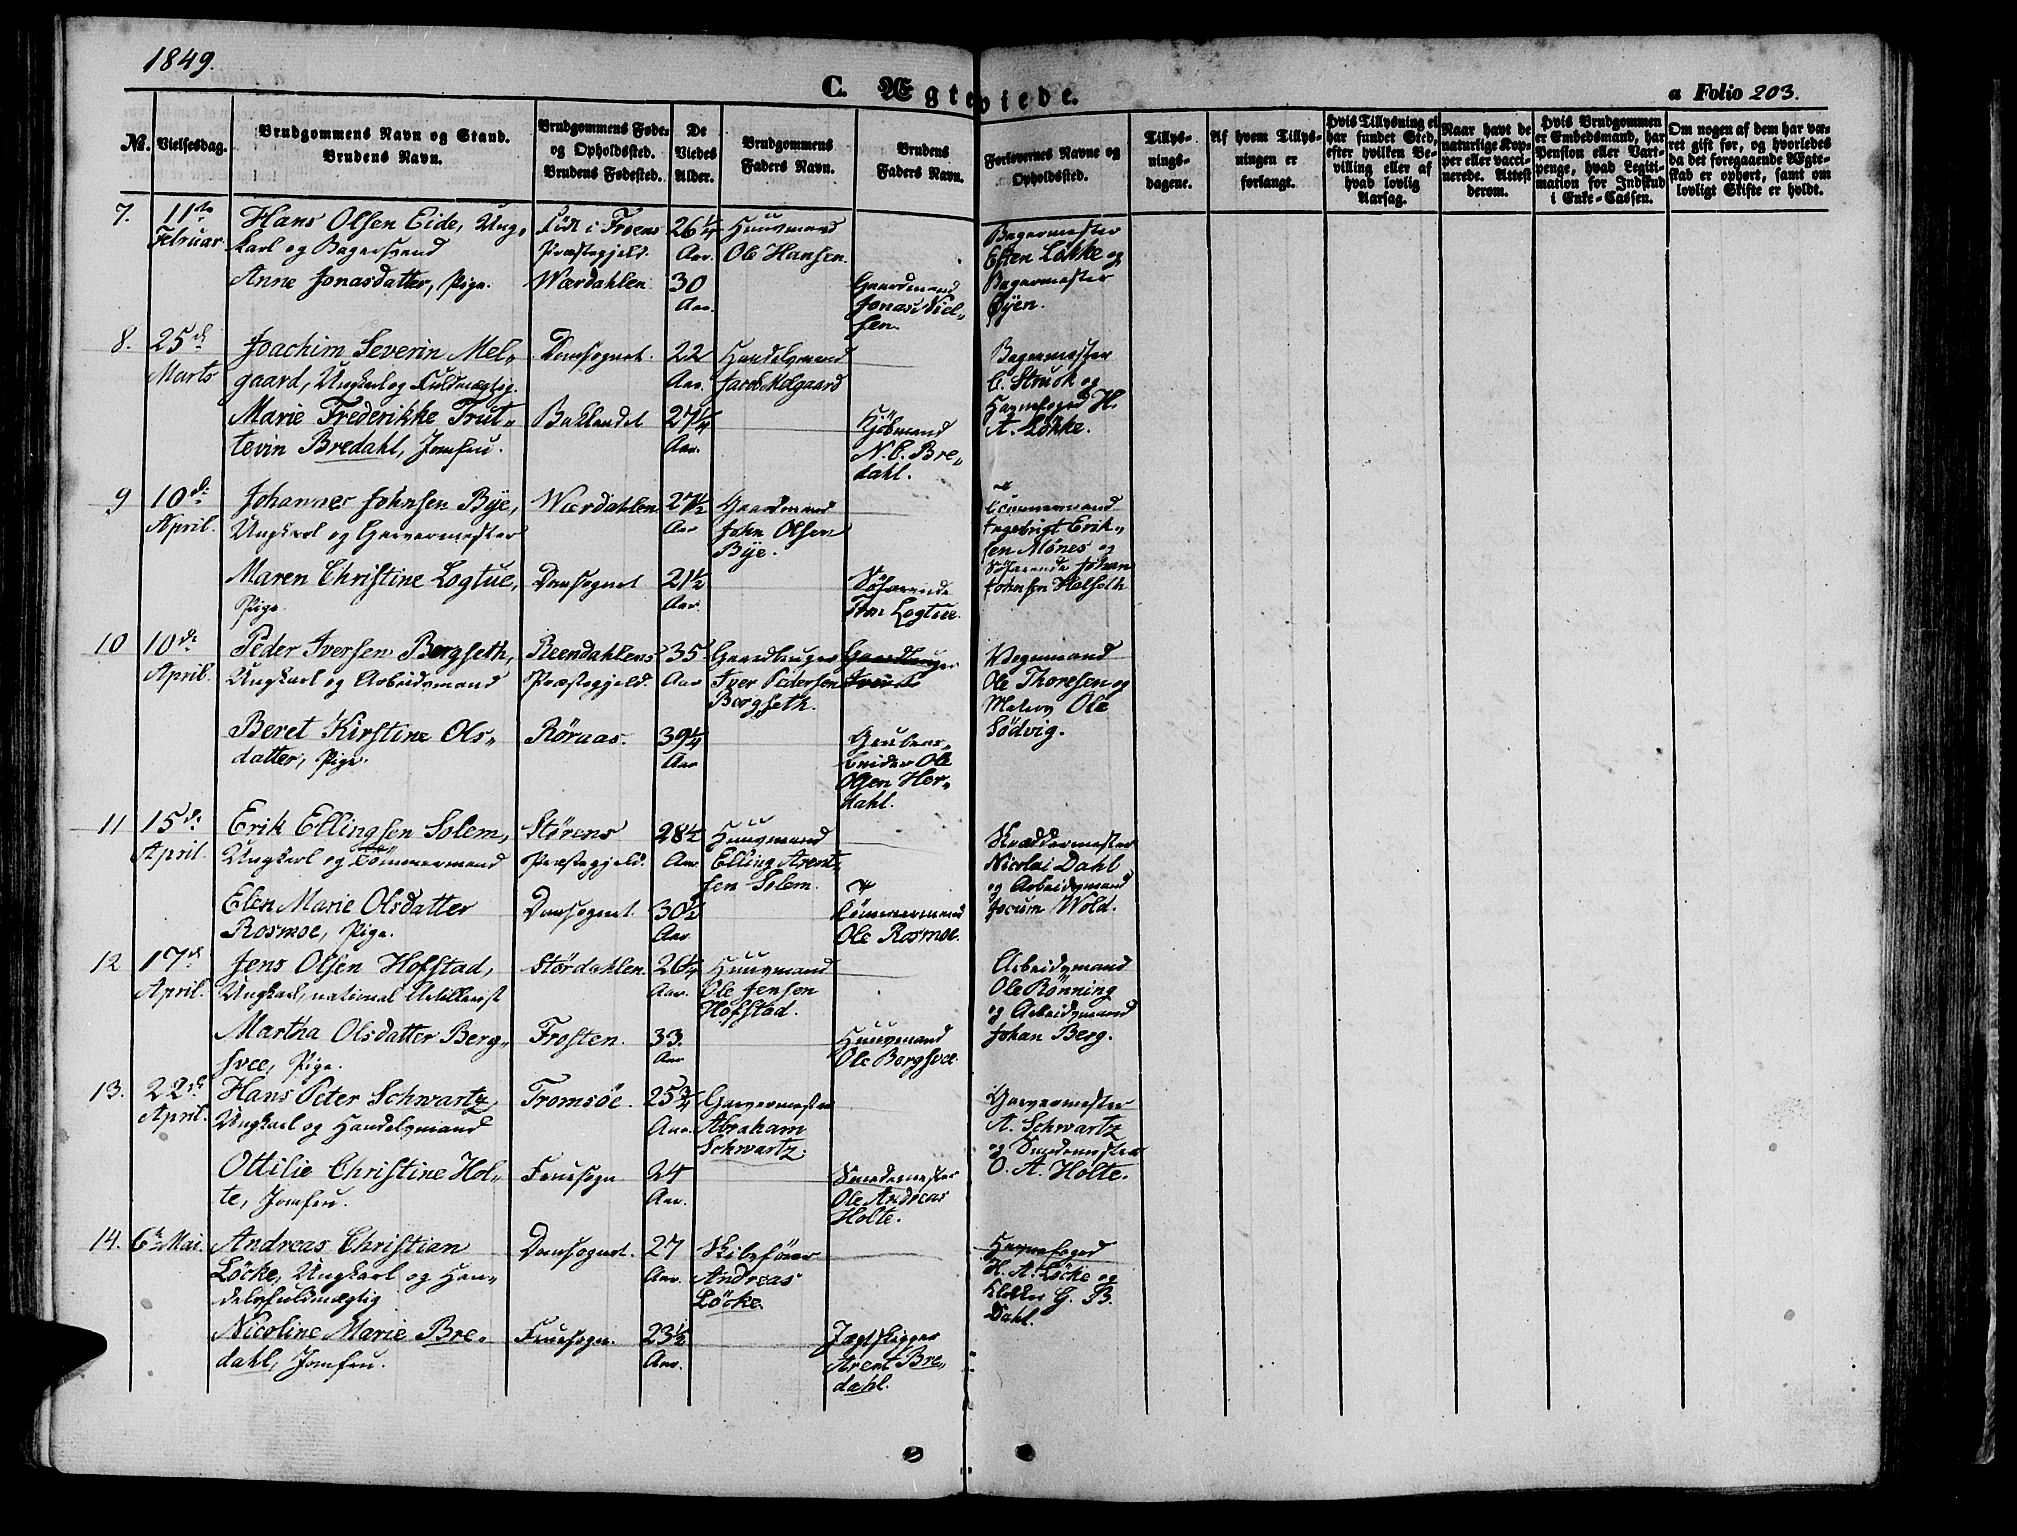 1849.
C. Ægteviede.
a Folio 203.
No.
Vielsesdag.
Brudgommens Navn og Stand.
Brudens Navn.
Brudgommens Føde-
og Opholdssted.
Brudens Fødested.
De
Viedes
Alder.
Brudgommens
Faders Navn.
Brudens
Faders Navn.
Forlovernes Navne og
Opholdssted.
Tillys-
nings-
dagene.
Af hvem Tillys-
ningen er
forlangt.
Hvis Tillysning ei
har fundet Sted,
efter hvilken Be-
villing eller af
hvad lovlig
Aarsag.
Naar havt de
naturlige Kop-
per eller vacci-
nerede. Attest
derom.
Hvis Brudgommen
er Embedsmand, har
Pension eller Vart-
penge, hvad Legiti-
mation for Indskud
i Enke-Cassen.
Om nogen af dem har væ-
ret gift før, og hvorledes
da det foregaaende Ægte-
skab er ophørt, samt om
lovligt Skifte er holdt.
7.
11te
Februar
Hans Olsen Eide, Ung-
karl og Bagersvend
Anne Jonasdatter, Pige.
Eide i Froens
Præstegjeld.
Værdahlen
26 1/4
Aar.
30
Aar.
Huusmand
Ole Hansen
Gaardmand
Jonas Niel-
sen.
Bagermester
Esten Løkke og
Bagermester
Øyen.
8.
25de
Marts
Joachim Severin Mel-
gaard, Ungkarl og Fuldmægtig.
Marie Frederikke Trut-
tevin Bredahl, Jomfru.
Domsognet.
Baklandet
22
Aar.
27 1/4
Aar.
Handelsmand
Jacob Melgaard
Kjøbmand
N. C. Bre-
dahl.
Bagermester
C. Struck og
Havnefoged H.
A. Løkke.
9
10de
April.
Johannes Johnsen Bye,
Ungkarl og Garvermester
Maren Christine Logtue,
Pige.
Værdahlen
Domsognet
27 1/2
Aar
21 1/2
Aar.
Gaardmand
John Olsen
Bye.
Søfarende
Tron Logtue.
Tømmermand
Ingebrigt Erik-
sen Mønes og
Søfarende Johan
Johnsen Halseth
10
10de
April.
Peder Iversen Bergseth,
Ungkarl og Arbeidsmand
Beret Kirstine Ols-
datter, Pige.
Reendahlens
Præstegjeld.
Røraas.
35
Aar
39 1/4
Aar
Gaardbruger
Iver Pedersen
Bergseth.
Gaardbruger
Iver P
Grubear-
beider Ole
Olsen Her-
dahl.
Vognmand
Ole Thoresen og
Ole
Sødvig.
11
15de
April.
Erik Ellingsen Solem,
Ungkarl og Tømmermand
Elen Marie Olsdatter
Rosmoe, Pige.
Størens
Præstegjeld.
Domsognet.
28 1/2
Aar
30 1/2
Aar
Huusmand
Elling Arent-
sen Solem.
Tømmermand
Ole Rosmoe.
Skræddermester
Nicolai Dahl
og Arbeidsmand
Jocum Wold.
12
17de
April.
Jens Olsen Hofstad,
Ungkarl, national Artillerist
Martha Olsdatter Berg-
svee, Pige.
Størdahlen.
Frosten.
26 1/4
Aar.
33.
Aar
Huusmand
Ole Jensen
Hofstad.
Huusmand
Ole Bergsvee.
Arbeidsmand
Ole Rønning
og Arbeidsmand
Johan Berg.
13.
22de
April.
Hans Peter Schwartz,
Ungkarl og Handelsmand
Ottilie Christine Hol-
te, Jomfru.
Tromsøe.
Fruesogn
25 3/4
Aar.
24
Aar.
Garvermester
Abraham
Schwartz.
Smedemester
Ole Andreas
Holte.
Garvermester
A. Schwartz
og Smedemester
O. A. Holte.
14.
6te Mai.
Andreas Christian
Løcke, Ungkarl og Han-
delsfuldmægtig
Nicoline Marie Bre-
dahl, Jomfru.
Domsognet.
Fruesogn.
27
Aar.
23 1/2
Aar.
Skibsfører
Andreas
Løcke.
Jægtskipper
Arent Bre-
dahl.
Havnefoged
H. A. Løcke og
Klokker G. B.
Dahl.